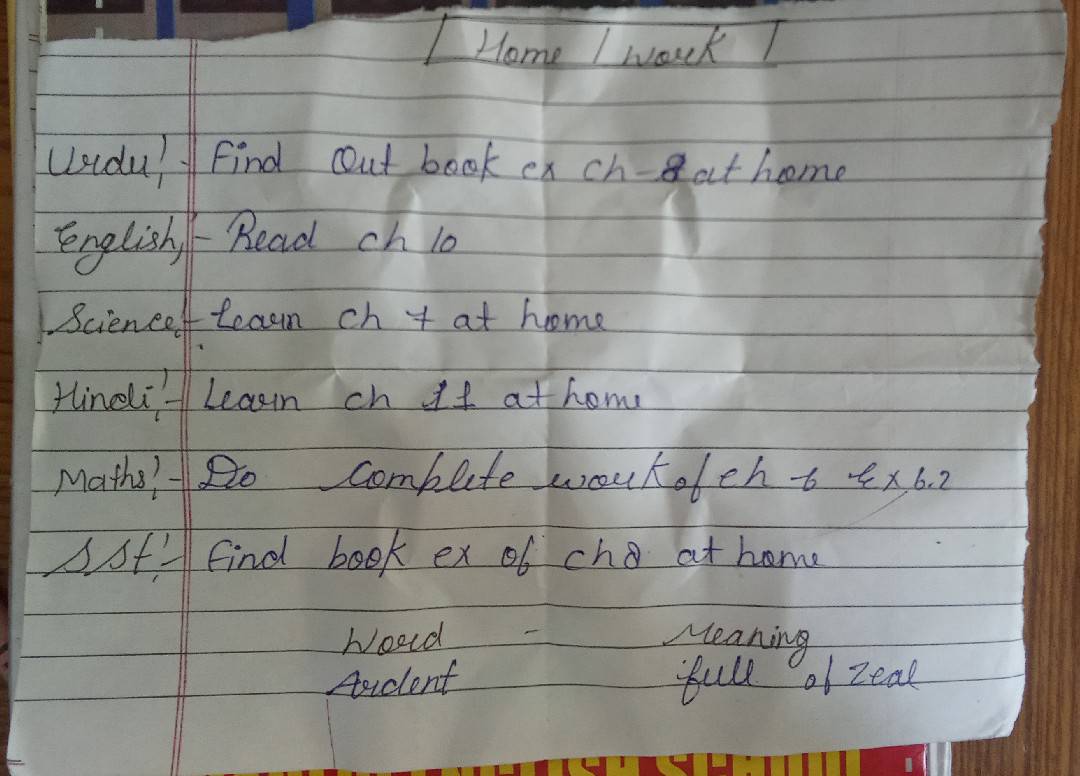 Home / Work
Urdu:- Find Out book ex ch-8 at home
English:- Read ch 10
Science:- Learn ch 7 at home
Hindi:- Learn ch 11 at home
Maths:- Do complete work of ch 6 Ex 6.2
SSt:- Find book ex of ch 8 at home
Word - Meaning
Ardent full of zeal
ENGLISH SCHOOL